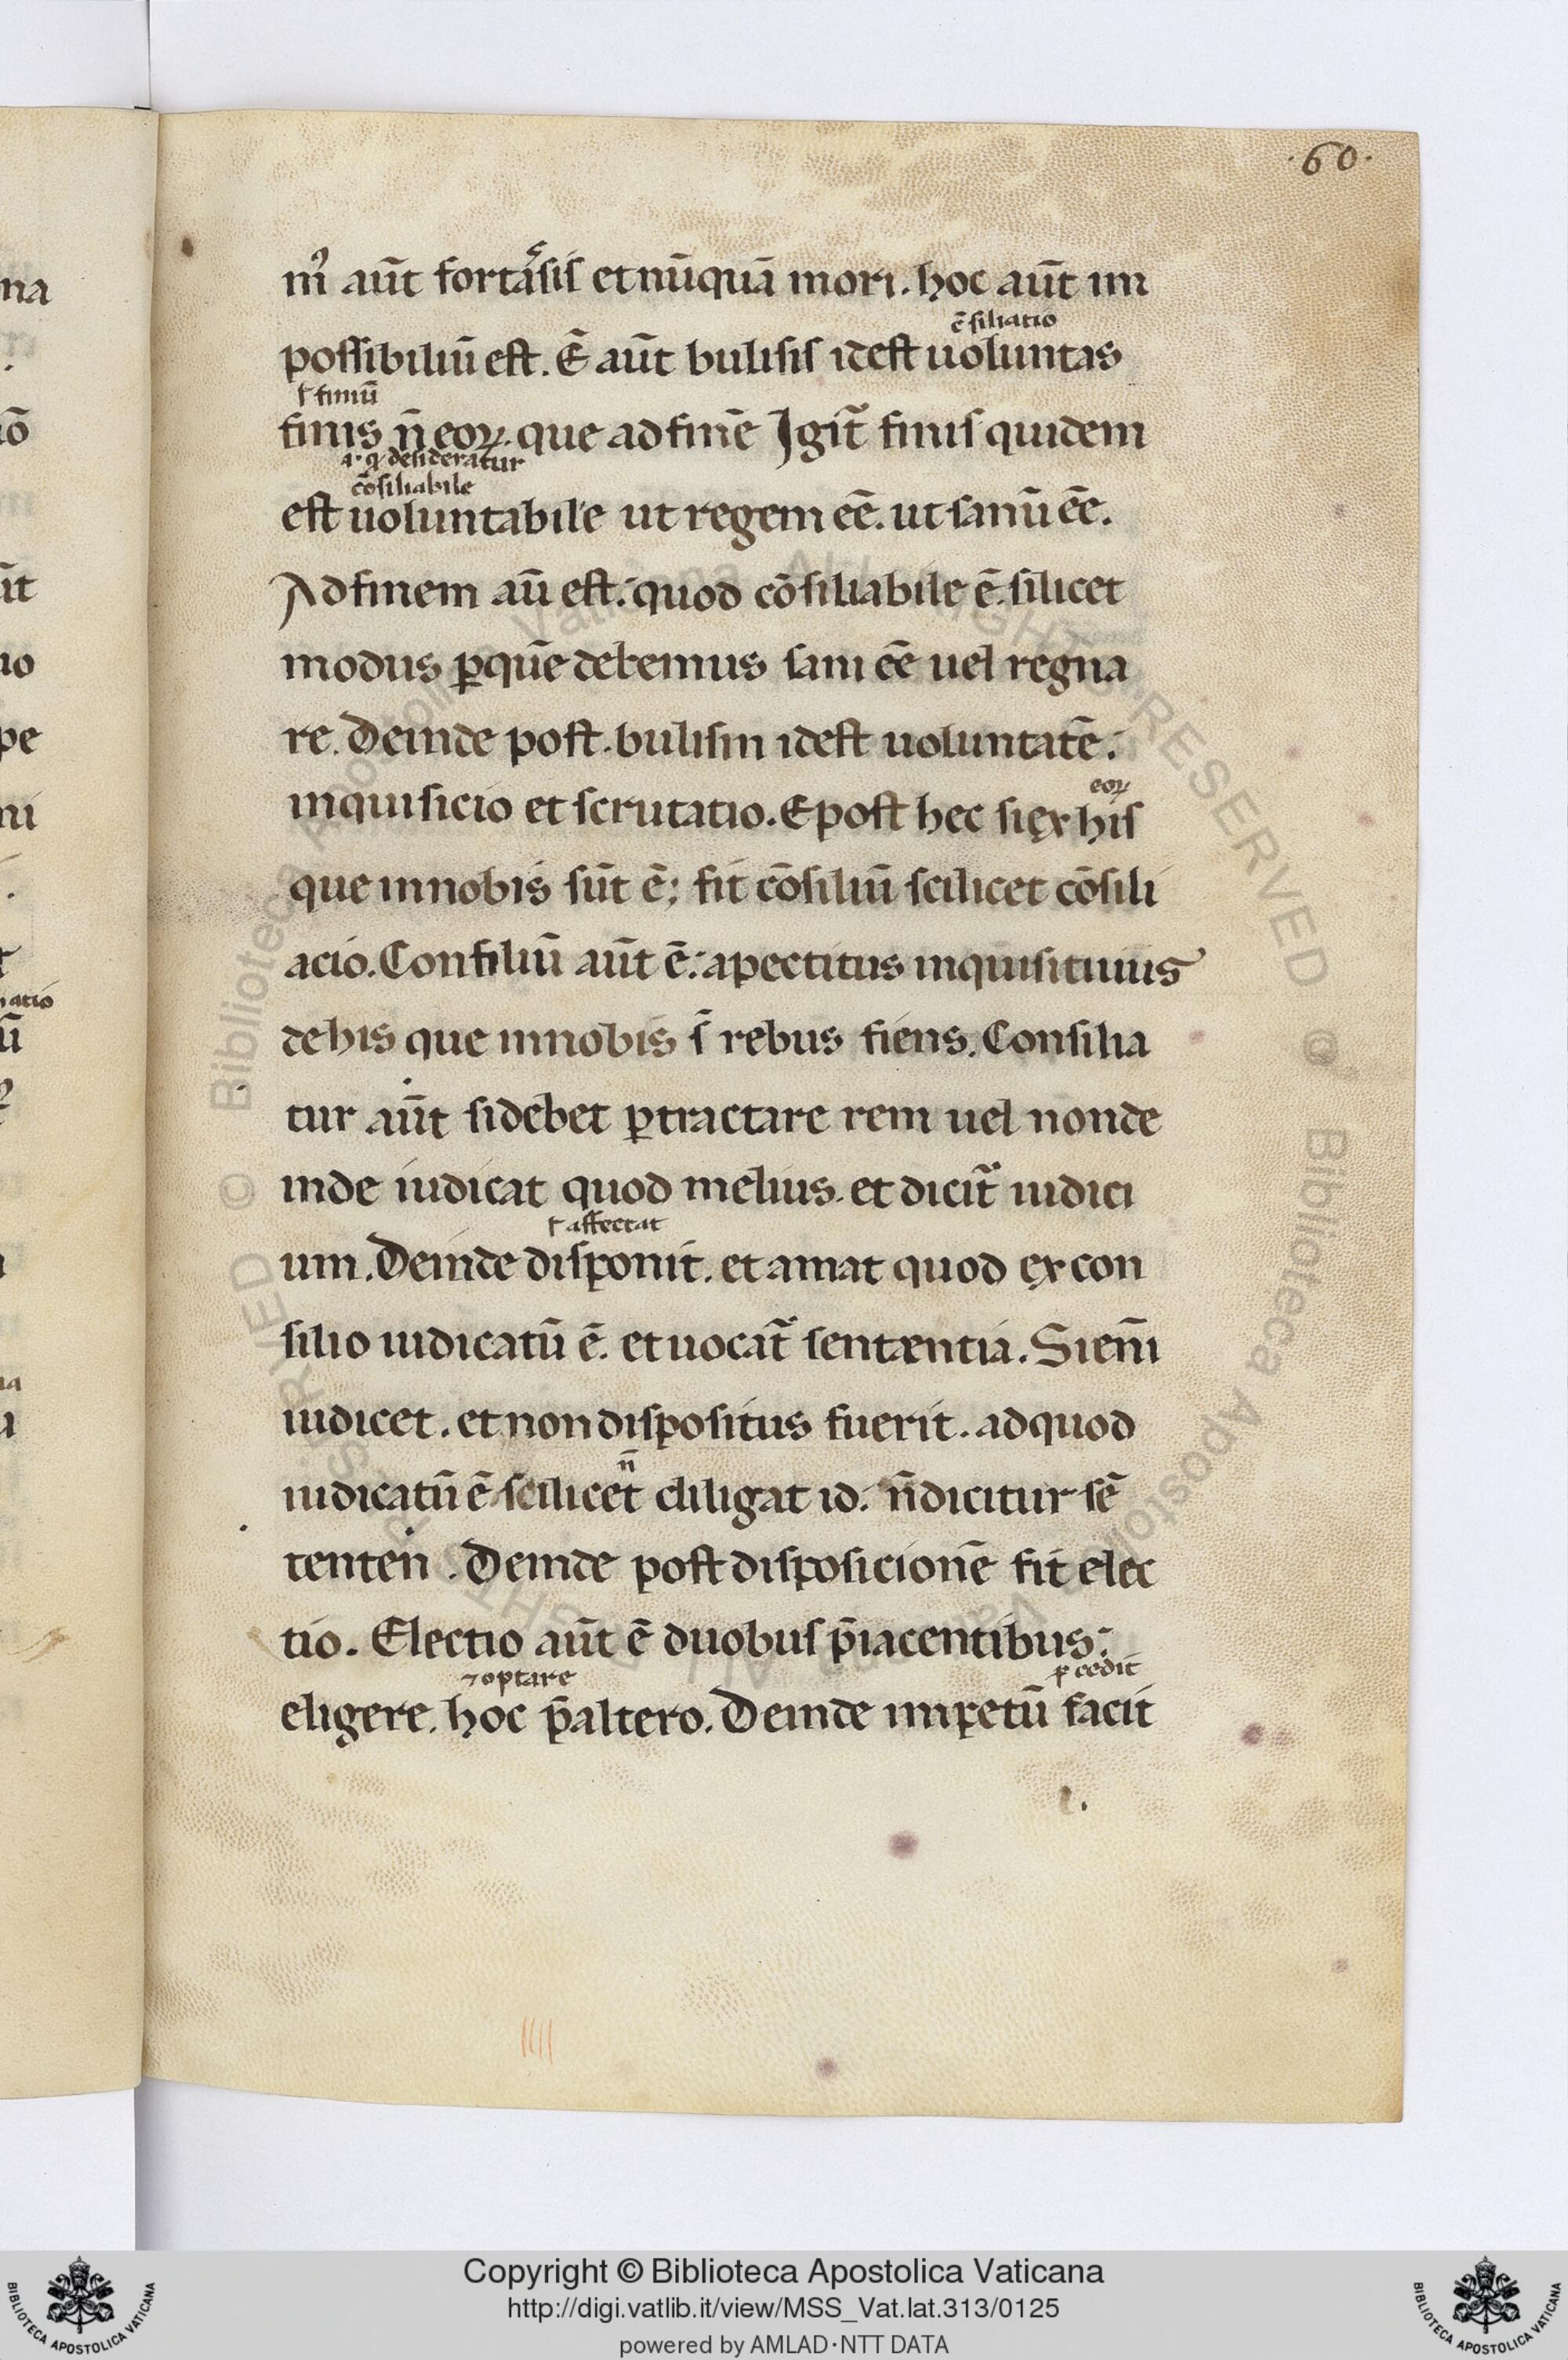 ·60·
mꝰ aūt fortasͨsis et nūquā mori. hoc aūt im
c̄siliatio
possibiliū est. Ē aūt bulisis idest uoluntas
ł finiū
finis n̄ eoꝝ. que ad finē Igit᷑ finis quidem
desideratur
cōsiliabile
est uoluntabile ut regem eē. ut sanū eē.
Ad finem aū est. quod cōsiliabile ē. silicet
modus ꝑ quē debemus sani eē uel regna
re. Deinde post. bulisin idest uoluntatē.
eoꝝ
inquisicio et scrutatio. E post hec si ex his
que in nobis sūt ē; fit cōsiliū scilicet cōsili
acio. Consiliū aūt ē: apectitus inquisitiuus
de his que in nobis s̄ rebus fiens. Consilia
tur aūt si debet ꝑtractare rem uel non de
inde iudicat quod melius. et dicit᷑ iudici
ł affectat
um. Deinde disponit. et amat quod ex con
silio iudicatū ē. et uocat᷑ sentæntia. Si eni̅
iudicet. et non dispositus fuerit. ad quod
n̄
iudicatū ē scilicet diligat id. n̄ dicitur sē
tenten. Deinde post disposicionē fit elec
tio. Electio aūt ē duobus p̄iacentibus:
⁊ optare
ꝓcedit
eligere. hoc p̄ altero. Deinde impetū facit
Copyright © Biblioteca Apostolica Vaticana
http://digi.vatlib.it/view/MSS_Vat.lat.313/0125
powered by AMLAD·NTT DATA